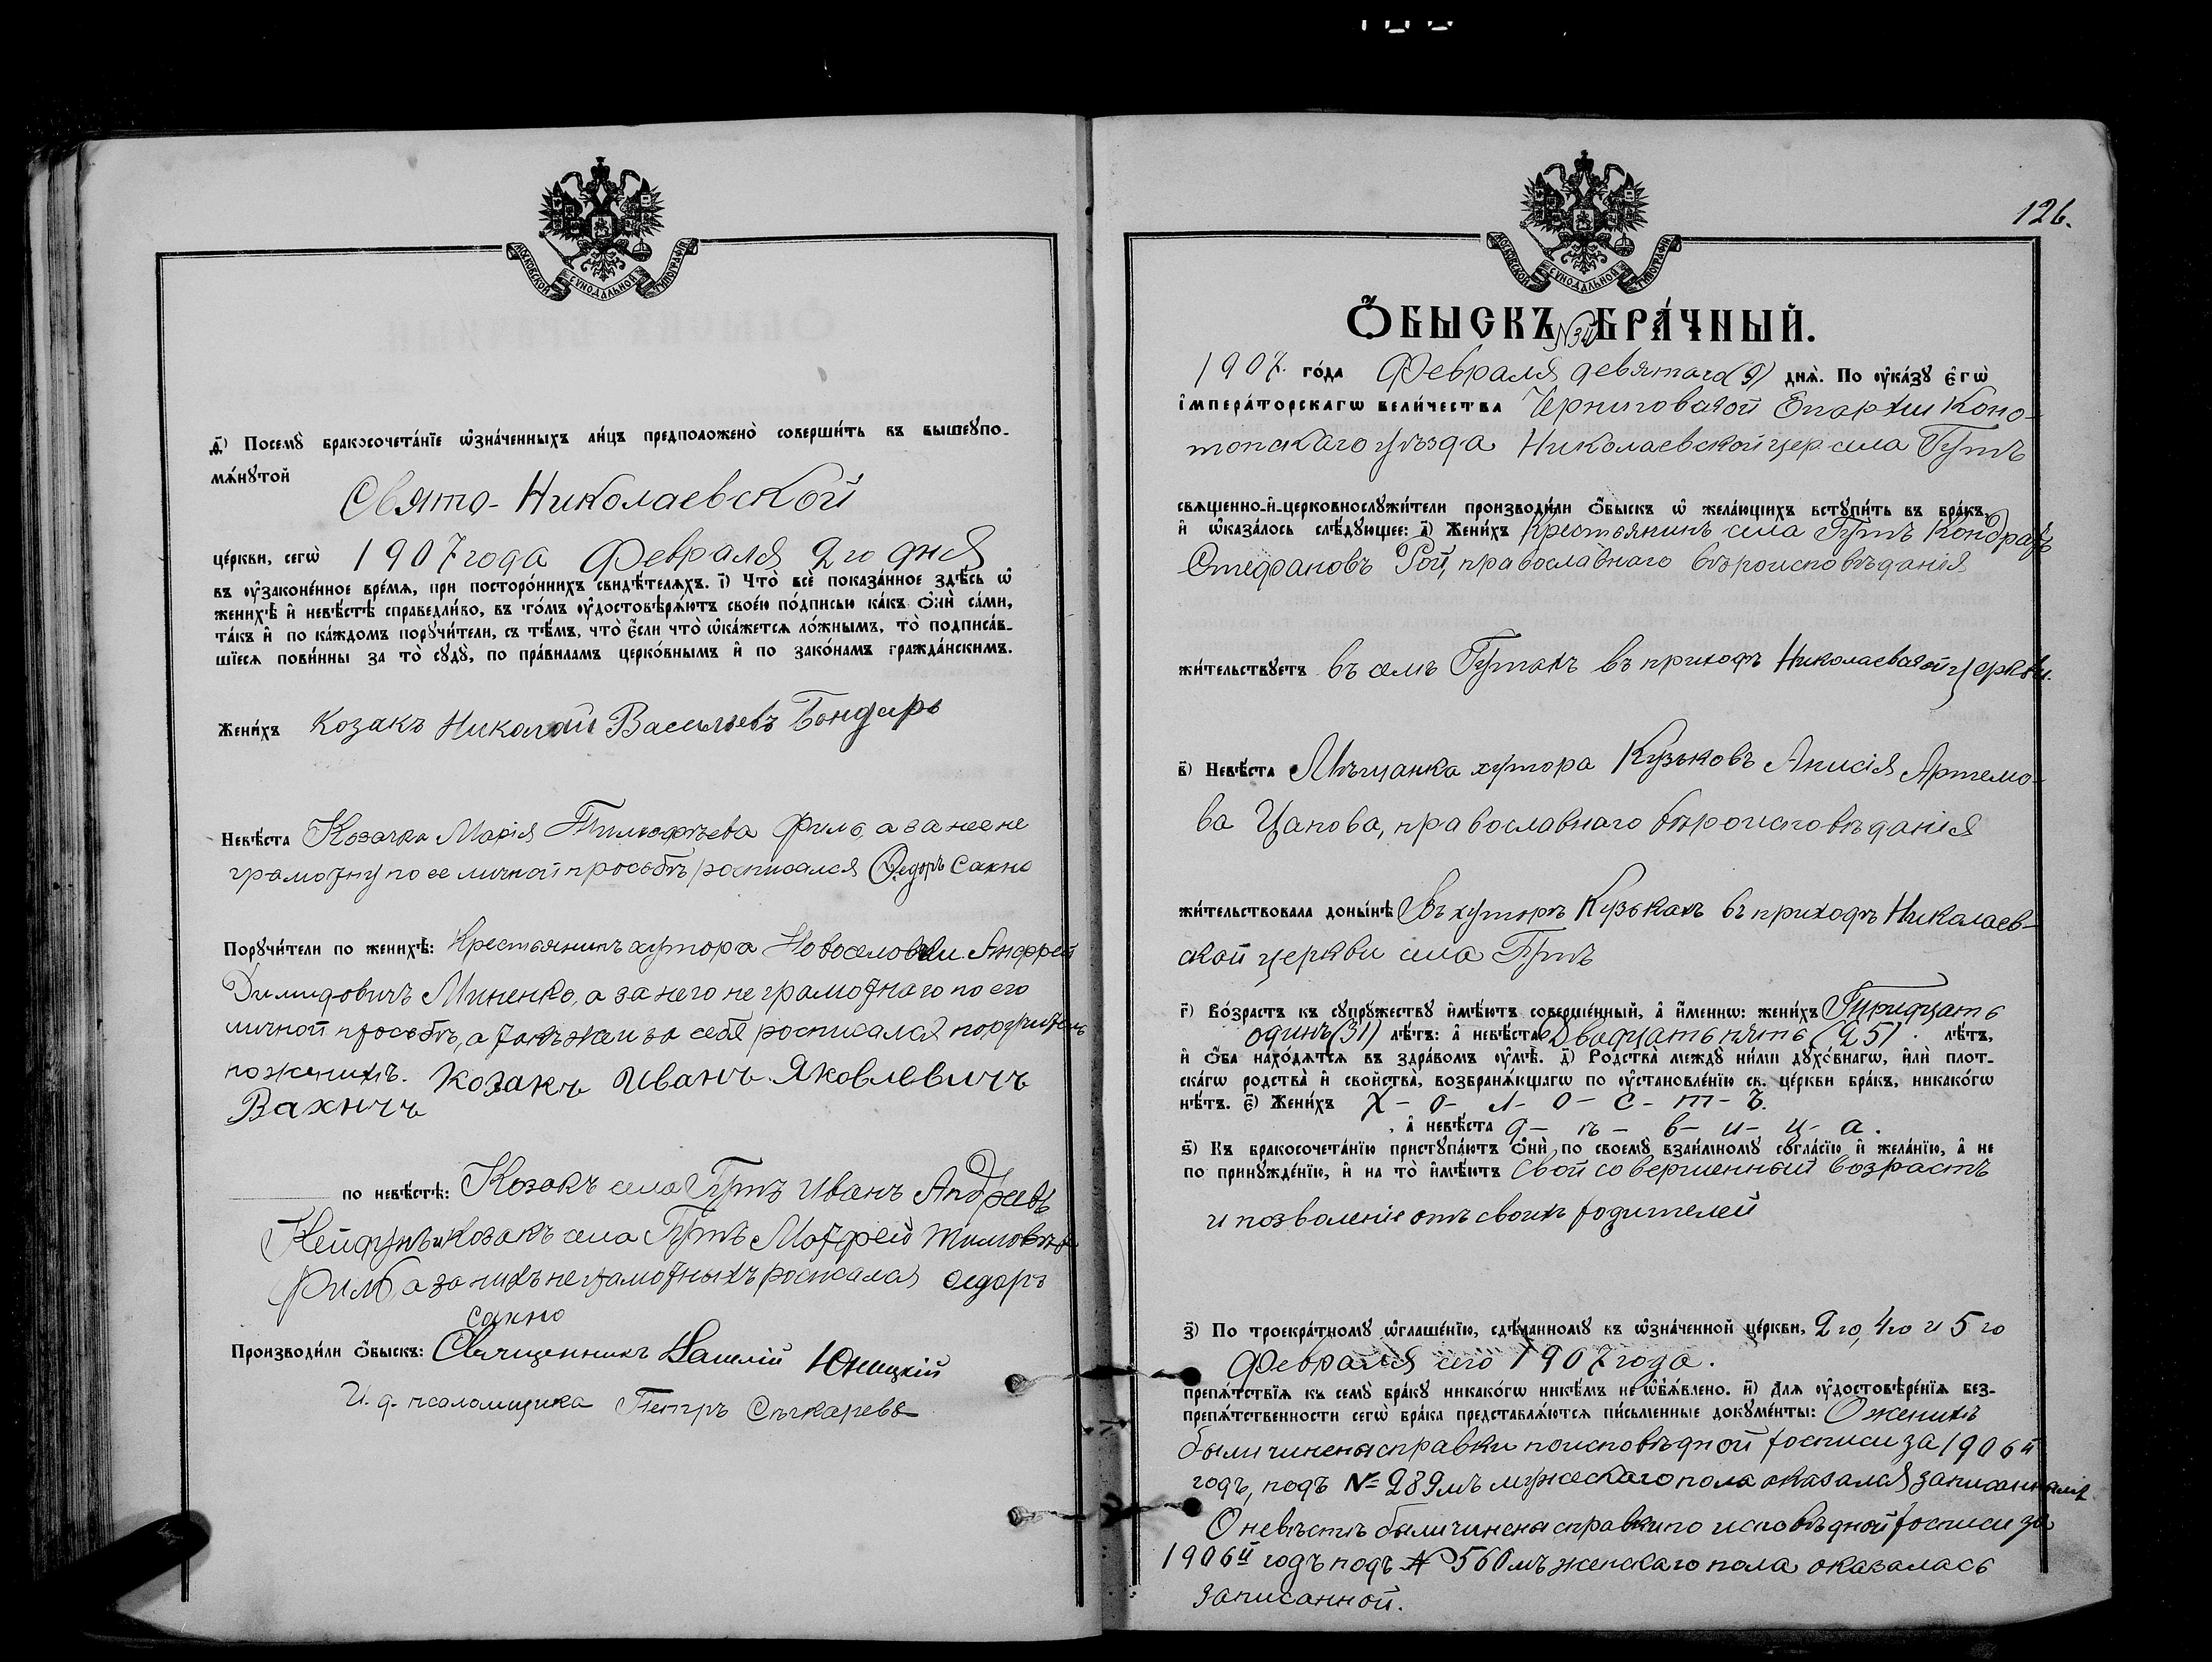 МОСКОВСКОЙ СѴНОДАЛЬНОЙ ТИПОГРАФІИ
ѳ҃) Посемꙋ̀ бракосочета́нїе ѡ҆зна́ченныхъ ли́цъ предположено̀ соверши́ть въ вышеупо-
мѧ́нꙋтой
Свято-Николаевской
це́ркви, сегѡ̀ 1907 года Февраля 9 го дня
въ ᲂу҆законе́нное вре́мѧ, при посторо́ннихъ свидѣ́телѧхъ. і҃) Что̀ всѐ показа́нное здѣ́сь ѡ҆
женихѣ̀ и҆ невѣ́стѣ справедли́во, въ то́мъ ᲂу҆достовѣрѧ́ютъ свое́ю по́дписью ка́къ ѻ҆нѝ са́ми,
та́къ и҆ по ка́ждомъ порꙋчи́тели, съ тѣ́мъ, что̀ є҆́сли что̀ ѡ҆ка́жетсѧ ло́жнымъ, то̀ подписа́в-
шїесѧ пови́нны за то̀ сꙋдꙋ̀, по пра́виламъ церко́внымъ и҆ по зако́намъ гражда́нскимъ.
Жени́хъ Козакъ Николай Васильевъ Бондарь
Невѣ́ста Козачка Марія Тимофѣева Филь, а за нее не
грамотну по ее личной просьбѣ росписался Ѳедоръ Сакно
Порꙋчи́тели по женихѣ̀: Крестьянинъ хутора Новоселовки Андрей
Димидовичъ Миненко, а за него не грамотнаго по его
личной просьбѣ, а такъ же и за себя росписался поручитель
по женихѣ. Козакъ Иванъ Яковлевичъ
Вахничъ
по невѣ́стѣ: Козакъ села Гутъ Иванъ Андреевъ
и Козакъ села Гутъ Матфей
Филь, а за нихъ не грамотныхъ росписался Ѳедоръ
Сакно
Производи́ли ѻ҆́быскъ: Священникъ Василій Юницкій
И. д. псаломщика Петръ Сѣчкаревъ
126.
МОСКОВСКОЙ СѴНОДАЛЬНОЙ ТИПОГРАФІИ
Ѻ҆́БЫСКЪ БРА́ЧНЫЙ.
1907. го́да Февраля девятаго (9) днѧ̀. По ᲂу҆ка́зꙋ є҆гѡ̀
і҆мпера́торскагѡ вели́чества Черниговской Епархіи Коно-
топскаго уѣзда Николаевской цер. села Гутъ
свѧщенно-и҆-церковнослꙋжи́тели производи́ли ѻ҆́быскъ ѡ҆ жела́ющихъ встꙋпи́ть въ бра́къ,
и҆ ѡ҆каза́лось слѣ́дꙋющее: а҃) Жени́хъ Крестьянинъ села Гутъ Кондратъ
Стефановъ Рой, православнаго вѣроисповѣданія
жи́тельствꙋетъ въ селѣ Гутахъ въ приходѣ Николаевской церкви.
в҃) Невѣ́ста Мѣщанка хутора Кузьковъ Анисія Артемо-
ва Цапова, православнаго вѣроисповѣданія
жи́тельствовала доны́нѣ Въ хуторѣ Кузькахъ въ приходѣ Николаев-
ской церкви села Гутъ
г҃) Во́зрастъ къ сꙋпрꙋ́жествꙋ и҆мѣ́ютъ соверше́нный, а҆ и҆́меннѡ: жени́хъ Тридцать
одинъ (31) лѣ́тъ: а҆ невѣ́ста Двадцать пять (25). лѣ́тъ,
и҆ ѻ҆́ба нахо́дѧтсѧ въ здра́вомъ ᲂу҆мѣ̀. д҃) Родства̀ междꙋ̀ ни́ми дꙋхо́внагѡ, и҆лѝ плот-
ска́гѡ родства̀ и҆ свойства̀, возбранѧ́ющагѡ по ᲂу҆становле́нїю св. це́ркви бра́къ, никако́гѡ
нѣ́тъ. є҃) Жени́хъ Х-о-л-о-с-т-ъ.
а҆ невѣ́ста д-ѣ-в-и-ц-а.
ѕ҃) Къ бракосочета́нїю пристꙋпа́ютъ ѻ҆нѝ по своемꙋ̀ взаи́мномꙋ согла́сїю и҆ жела́нїю, а҆ не
по принꙋжде́нїю, и҆ на то̀ и҆мѣ́ютъ свой совершенный возрастъ
и позволеніе отъ своихъ родителей
з҃) По троекра́тномꙋ ѡ҆глаше́нїю, сдѣ́ланномꙋ въ ѡ҆зна́ченной це́ркви, 2 го, 4 го и 5 го
Февраля сего 1907 года.
препѧ́тствїѧ къ семꙋ̀ бра́кꙋ никако́гѡ никѣ́мъ не ѡ҆б̾ѧ́влено. и҃) Длѧ ᲂу҆достовѣре́нїѧ без-
препѧ́тственности сегѡ̀ бра́ка представлѧ́ютсѧ пи́сьменные докꙋме́нты: О женихѣ
были чинены справки по исповѣдной росписи за 1906 й
годъ, подъ № 289 мъ мужескаго пола оказался записаннымъ.
О невѣстѣ были чинены справки по исповѣдной росписи за
1906 й годъ подъ № 560 мъ женскаго пола оказалась
записанной.